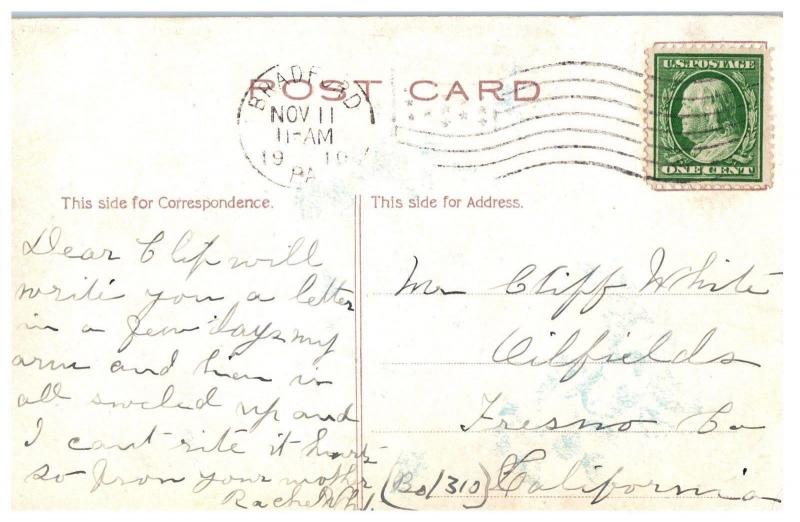 POST CARD
BRADFORD
NOV 11
11-AM
1910
PA
U.S. POSTAGE
ONE CENT
This side for Correspondence.
This side for Address.
Dear Clif will
write you a letter
in a few days my
arm and is
all swoled up and
I cant rite it hurts
so from your mother
Rachel Wh
Mr Cliff White
Oilfields
Fresno Co
(Bo/310) California